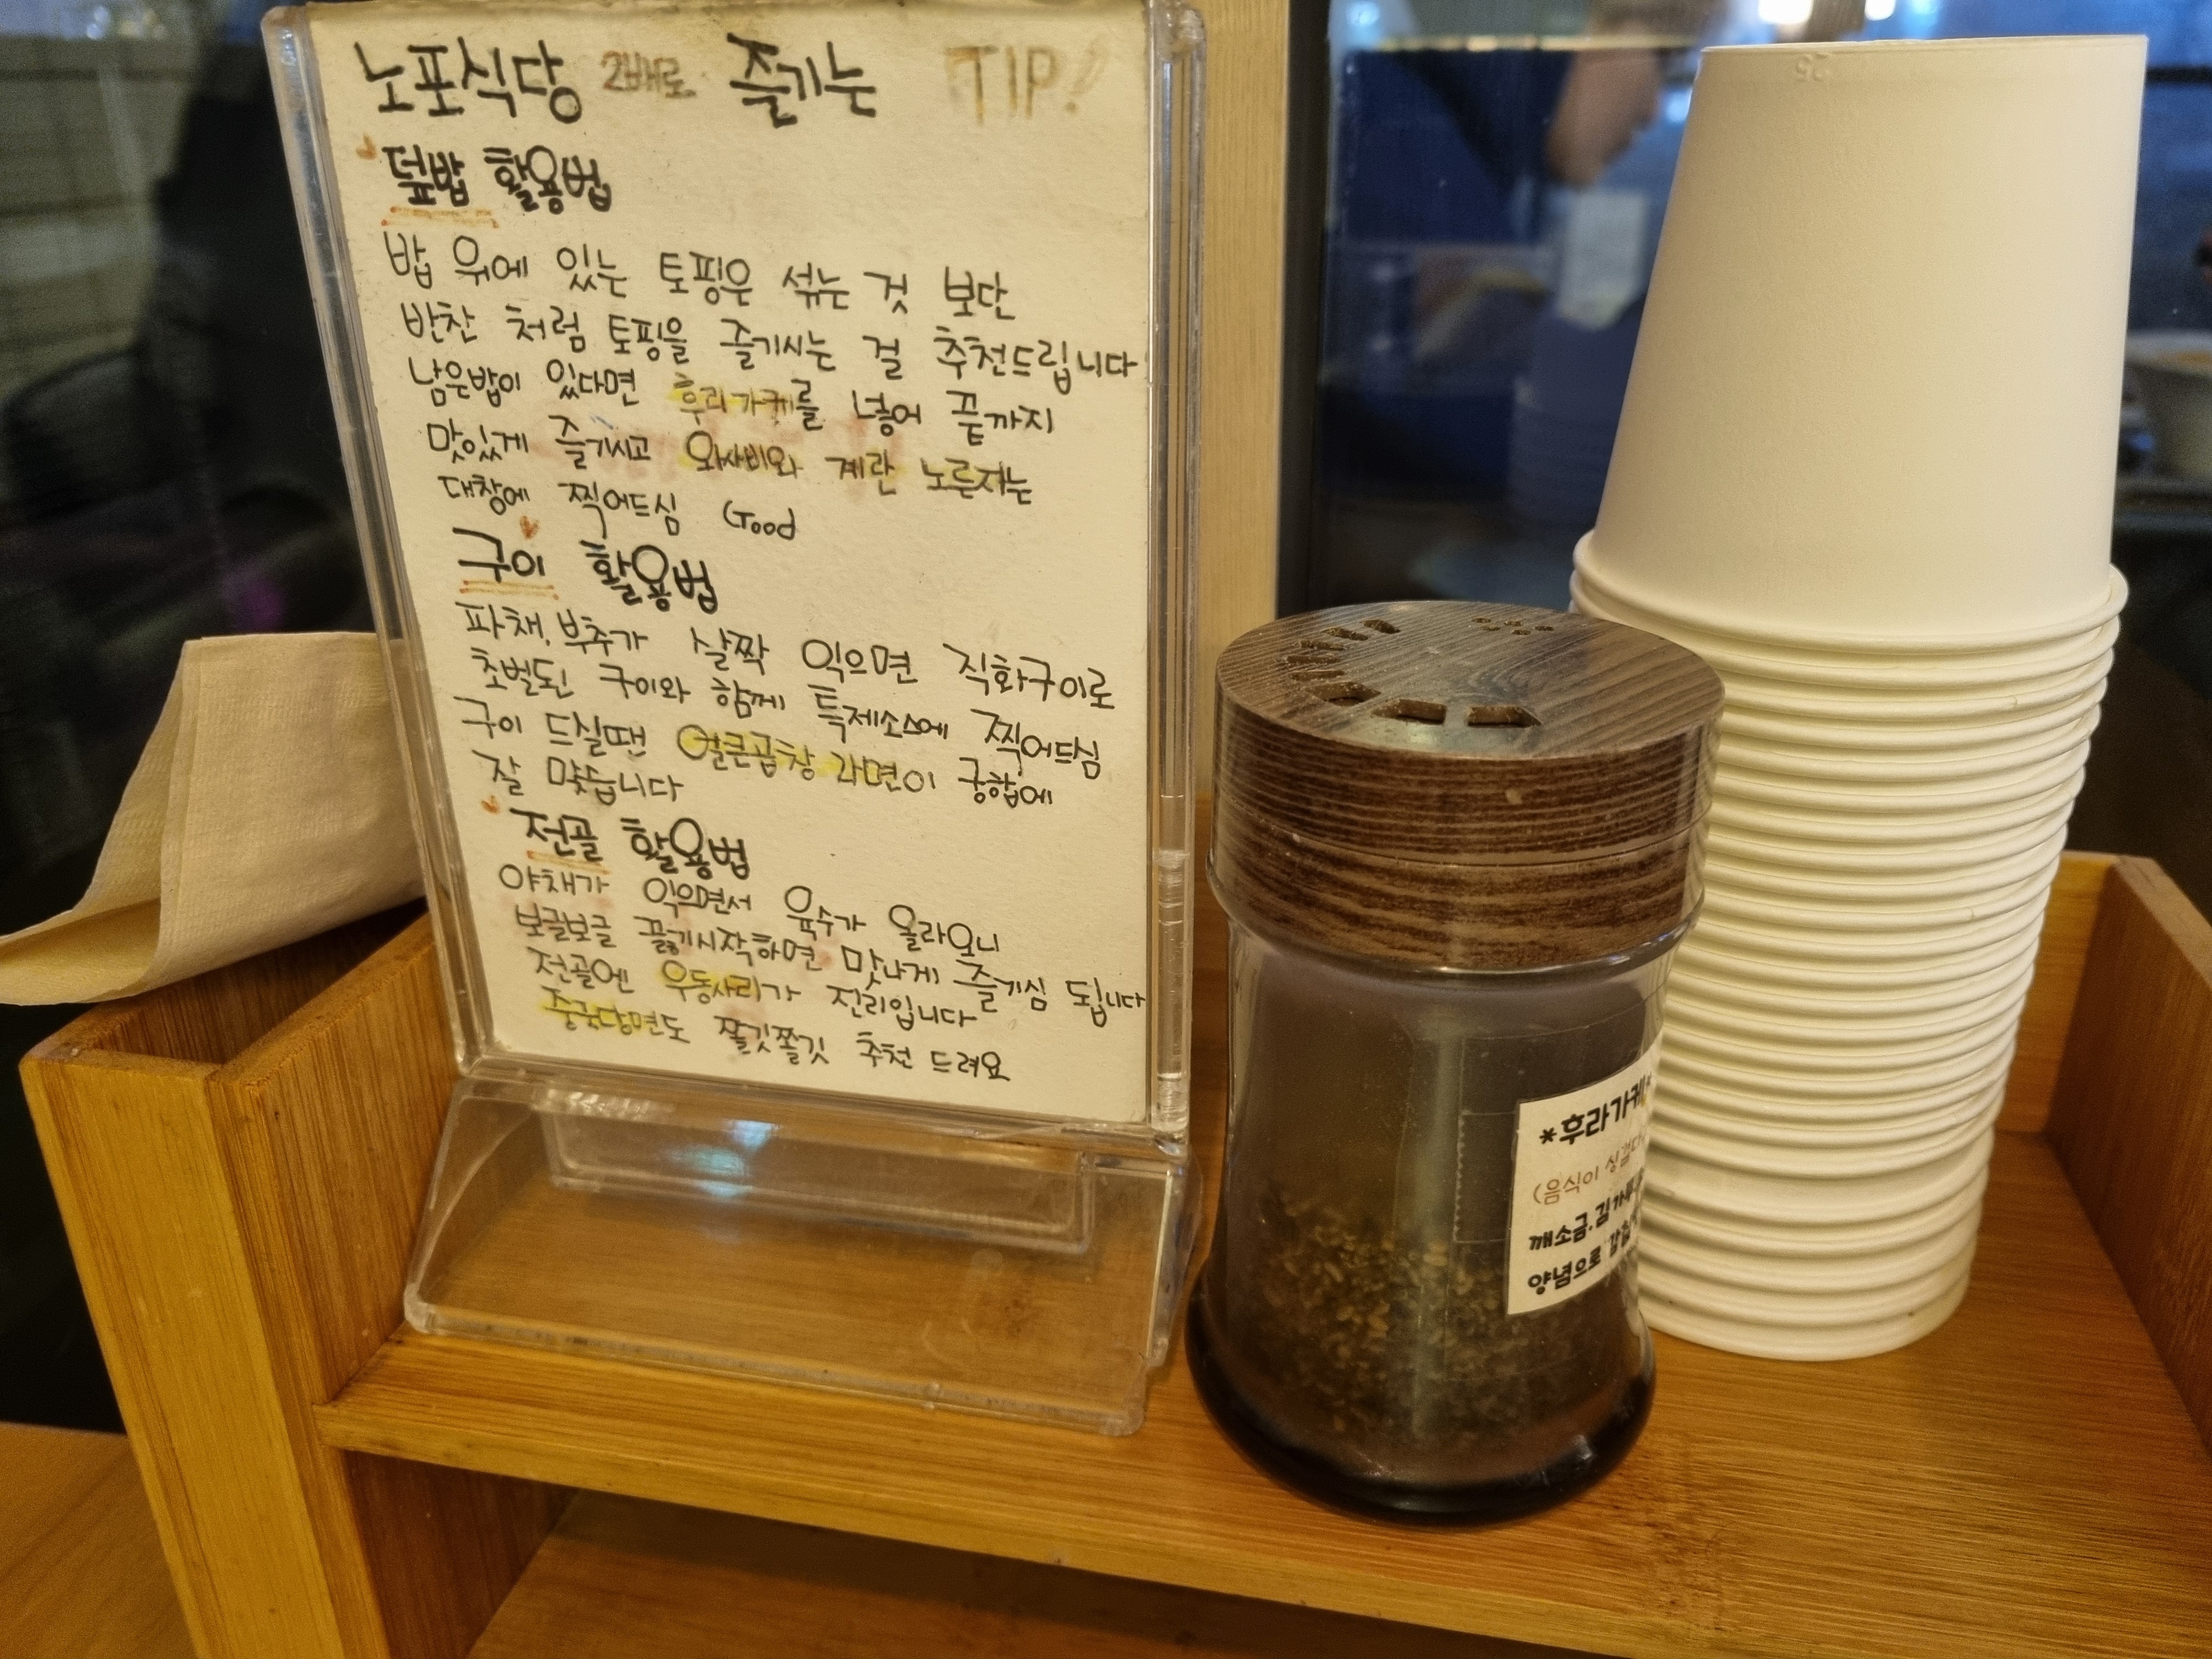 노포식당 2배로 즐기는 TIP!
덮밥 활용법
밥 위에 있는 토핑은 섞는 것 보단
반찬 처럼 토핑을 즐기시는 걸 추천드립니다
남은밥이 있다면 후리가케를 넣어 끝까지
맛있게 즐기시고 와사비와 계란 노른자는
대창에 찍어드심 Good
구이 활용법
파채, 부추가 살짝 익으면 직화구이로
초벌된 구이와 함께 특제소스에 찍어드심
구이 드실땐 얼큰곱창 라면이 궁합에
잘 맞습니다
전골 활용법
야채가 익으면서 육수가 올라오니
보글보글 끓기시작하면 맛나게 즐기심 됩니다
전골엔 우동사리가 진리입니다
중국당면도 쫄깃쫄깃 추천 드려요
*후라가케*
(음식이 싱겁다
깨소금.김가루
양념으로
25